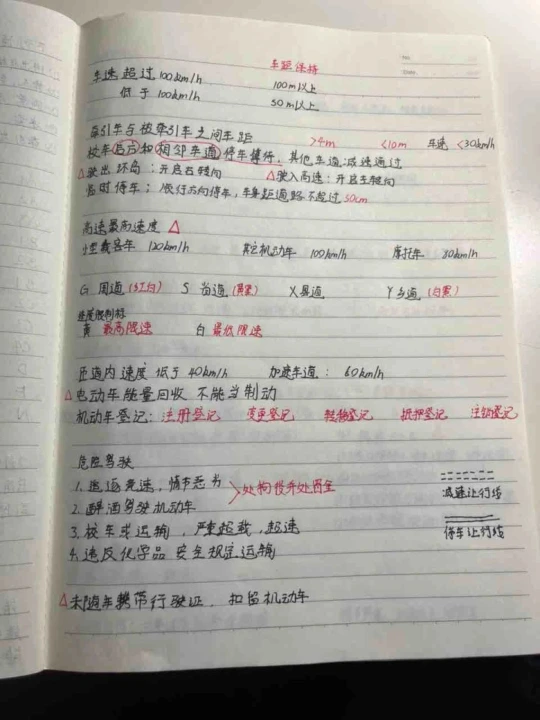 车距保持
车速超过100km/h 100m以上
低于100km/h 50m以上
牵引车与被牵引车之间车距 >4m <10m 车速<30km/h
校车后方和相邻车道停车等待，其他车道减速通过
△驶出环岛：开启右转向 △驶入高速：开启左转向
临时停车：依行方向停车，车身距道路不超过50cm
高速最高速度 △
小型载客车 120km/h 其它机动车 100km/h 摩托车 80km/h
G 国道(红白) S 省道(黄黑) X县道 Y乡道(白黑)
速度限制标
黄 最高限速 白 最低限速
匝道内速度低于40km/h 加速车道：60km/h
△电动车能量回收不能当制动
机动车登记：注册登记 变更登记 转移登记 抵押登记 注销登记
危险驾驶
1.追逐竞速，情节恶劣 >处拘役并处罚金
2.醉酒驾驶机动车 减速让行线
3.校车或运输，严重超载，超速 停车让行线
4.违反化学品安全规定运输
△未随车携带行驶证，扣留机动车